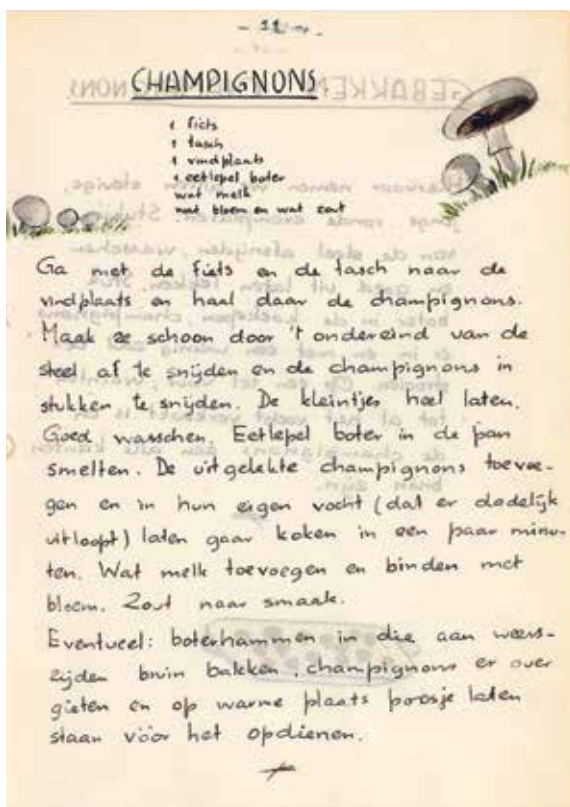 - 11 -
CHAMPIGNONS
1 fiets
1 tasch
1 vindplaats
1 eetlepel boter
wat melk
wat bloem en wat zout
Ga met de fiets en de tasch naar de
vindplaats en haal daar de champignons.
Maak ze schoon door 't ondereind van de
steel af te snijden en de champignons in
stukken te snijden. De kleintjes heel laten.
Goed wasschen. Eetlepel boter in de pan
smelten. De uitgelekte champignons toevoe-
gen en in hun eigen vocht (dat er dadelijk
uitloopt) laten gaar koken in een paar minu-
ten. Wat melk toevoegen en binden met
bloem. Zout naar smaak.
Eventueel: boterhammen in die aan weers-
zijden bruin bakken, champignons er over
gieten en op warme plaats poosje laten
staan vóór het opdienen.